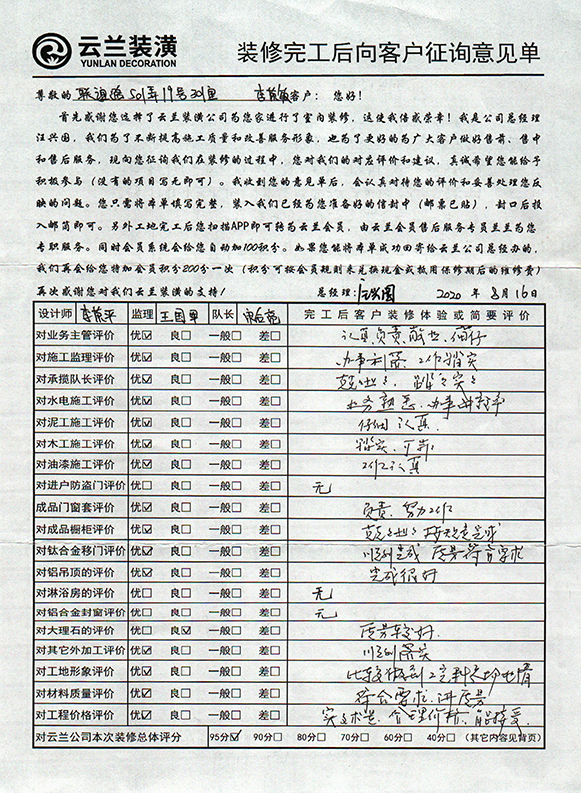 云兰装潢
YUNLAN DECORATION
装修完工后向客户征询意见单
尊敬的 联谊路501弄19号301室 客户： 您好！
首先感谢您选择了云兰装潢公司为您家进行了室内装修，这使我倍感荣幸！我是公司总经理
汪兴国，我们为了不断提高施工质量和改善服务形象，也为了更好的为广大客户做好售前、售中
和售后服务，现向您征询我们在装修的过程中，您对我们的对应评价和建议，真诚希望您能给予
积极参与（没有的项目写无即可）。我收到您的意见单后，会认真对待您的评价和妥善处理您反
映的问题。您只需将本单填写完整，装入我们已经为您准备好的信封中（邮票已贴），封口后投
入邮筒即可。另外工地完工后您扫描APP即可转为云兰会员，由云兰会员售后服务专员兰兰为您
专职服务。同时会员系统会给您自动加100积分。如果您能将本单成功回寄给云兰公司总经办的，
我们再会给您特加会员积分200分一次（积分可按会员规则来兑换现金或抵用保修期后的维修费）
再次感谢您对我们云兰装潢的支持！ 总经理：汪兴国 2020 年 8月16日
设计师 李荣平 监理 王国军 队长 完工后客户装修体验或简要评价
对业务主管评价 优☑ 良□ 一般□ 差□ 认真负责 敬业、仔仔
对施工监理评价 优☑ 良□ 一般□ 差□ 办事利落、工作踏实
对承揽队长评价 优☑ 良□ 一般□ 差□ 踏踏实实
对水电施工评价 优☑ 良□ 一般□ 差□ 业务熟悉、办事
对泥工施工评价 优☑ 良□ 一般□ 差□ 仔细 认真
对木工施工评价 优☑ 良□ 一般□ 差□ 踏实、可靠
对油漆施工评价 优☑ 良□ 一般□ 差□ 工作认真
对进户防盗门评价 优□ 良□ 一般□ 差□ 无
成品门窗套评价 优☑ 良□ 一般□ 差□ 负责、努力工作
对成品橱柜评价 优☑ 良□ 一般□ 差□
对钛合金移门评价 优☑ 良□ 一般□ 差□ 顺利完成 质量符合要求
对铝吊顶的评价 优☑ 良□ 一般□ 差□ 完成很好
对淋浴房的评价 优□ 良□ 一般□ 差□ 无
对铝合金封窗评价 优□ 良□ 一般□ 差□ 无
对大理石的评价 优□ 良☑ 一般□ 差□ 质量较好
对其它外加工评价 优☑ 良□ 一般□ 差□ 顺利 落实
对工地形象评价 优☑ 良□ 一般□ 差□ 比较做到工完料尽场地清
对材料质量评价 优☑ 良□ 一般□ 差□ 符合要求、讲质量
对工程价格评价 优☑ 良□ 一般□ 差□ 合理价格、能接受
对云兰公司本次装修总体评分 95分☑ 90分□ 80分□ 70分□ 60分□ 40分□ （其它内容见背页）